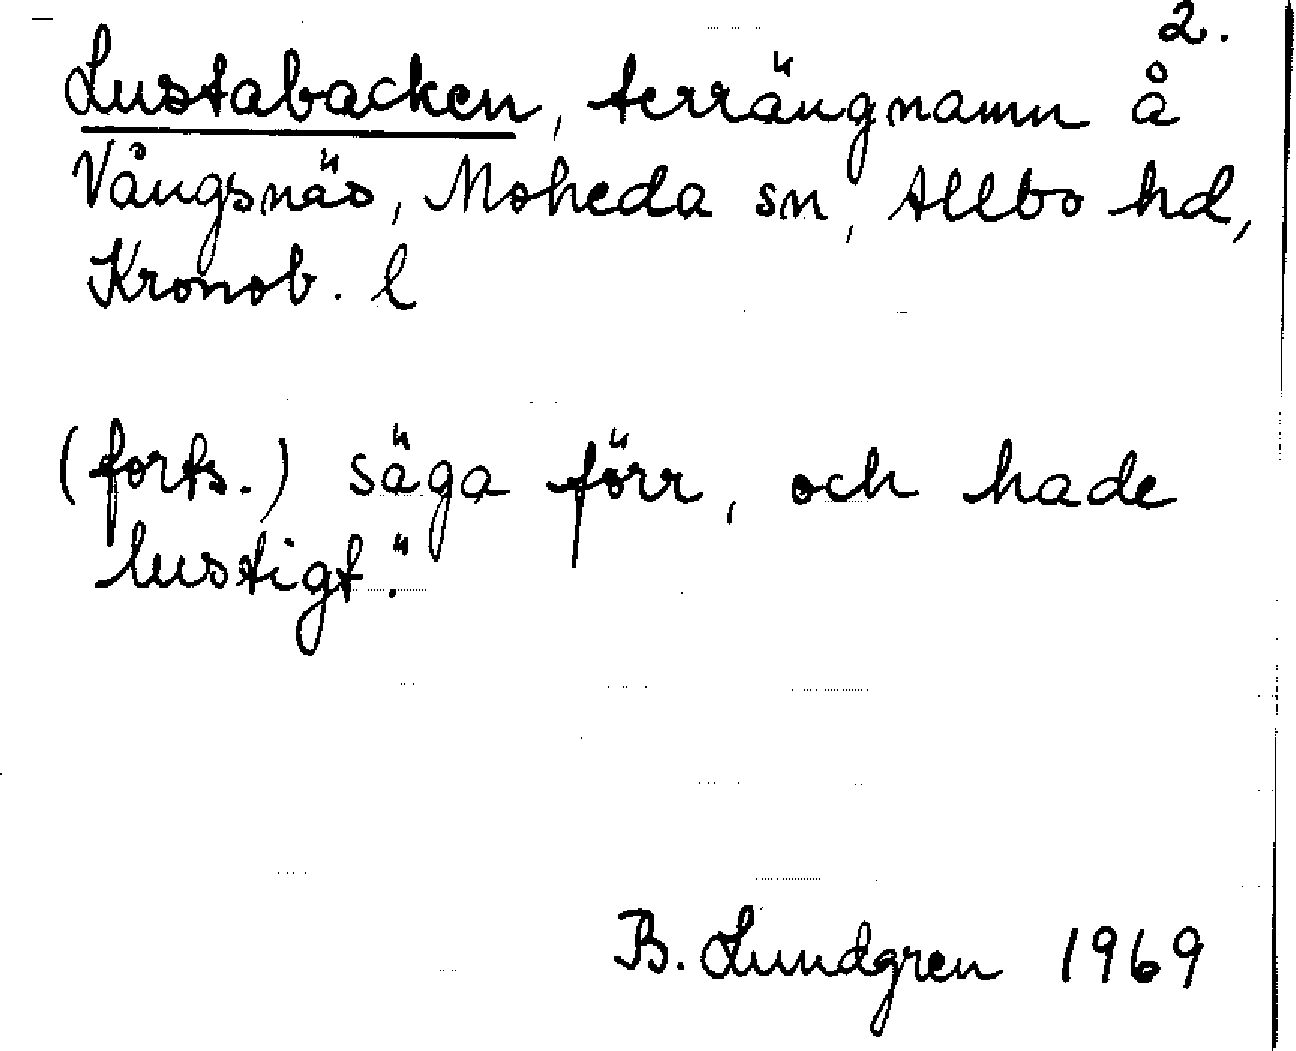 2.
Lustabacken, terrängnamn å
Vångsnäs, Moheda sn, Allbo hd,
Kronob. l
(forts.) säga förr, och hade
lustigt."
B. Lundgren 1969